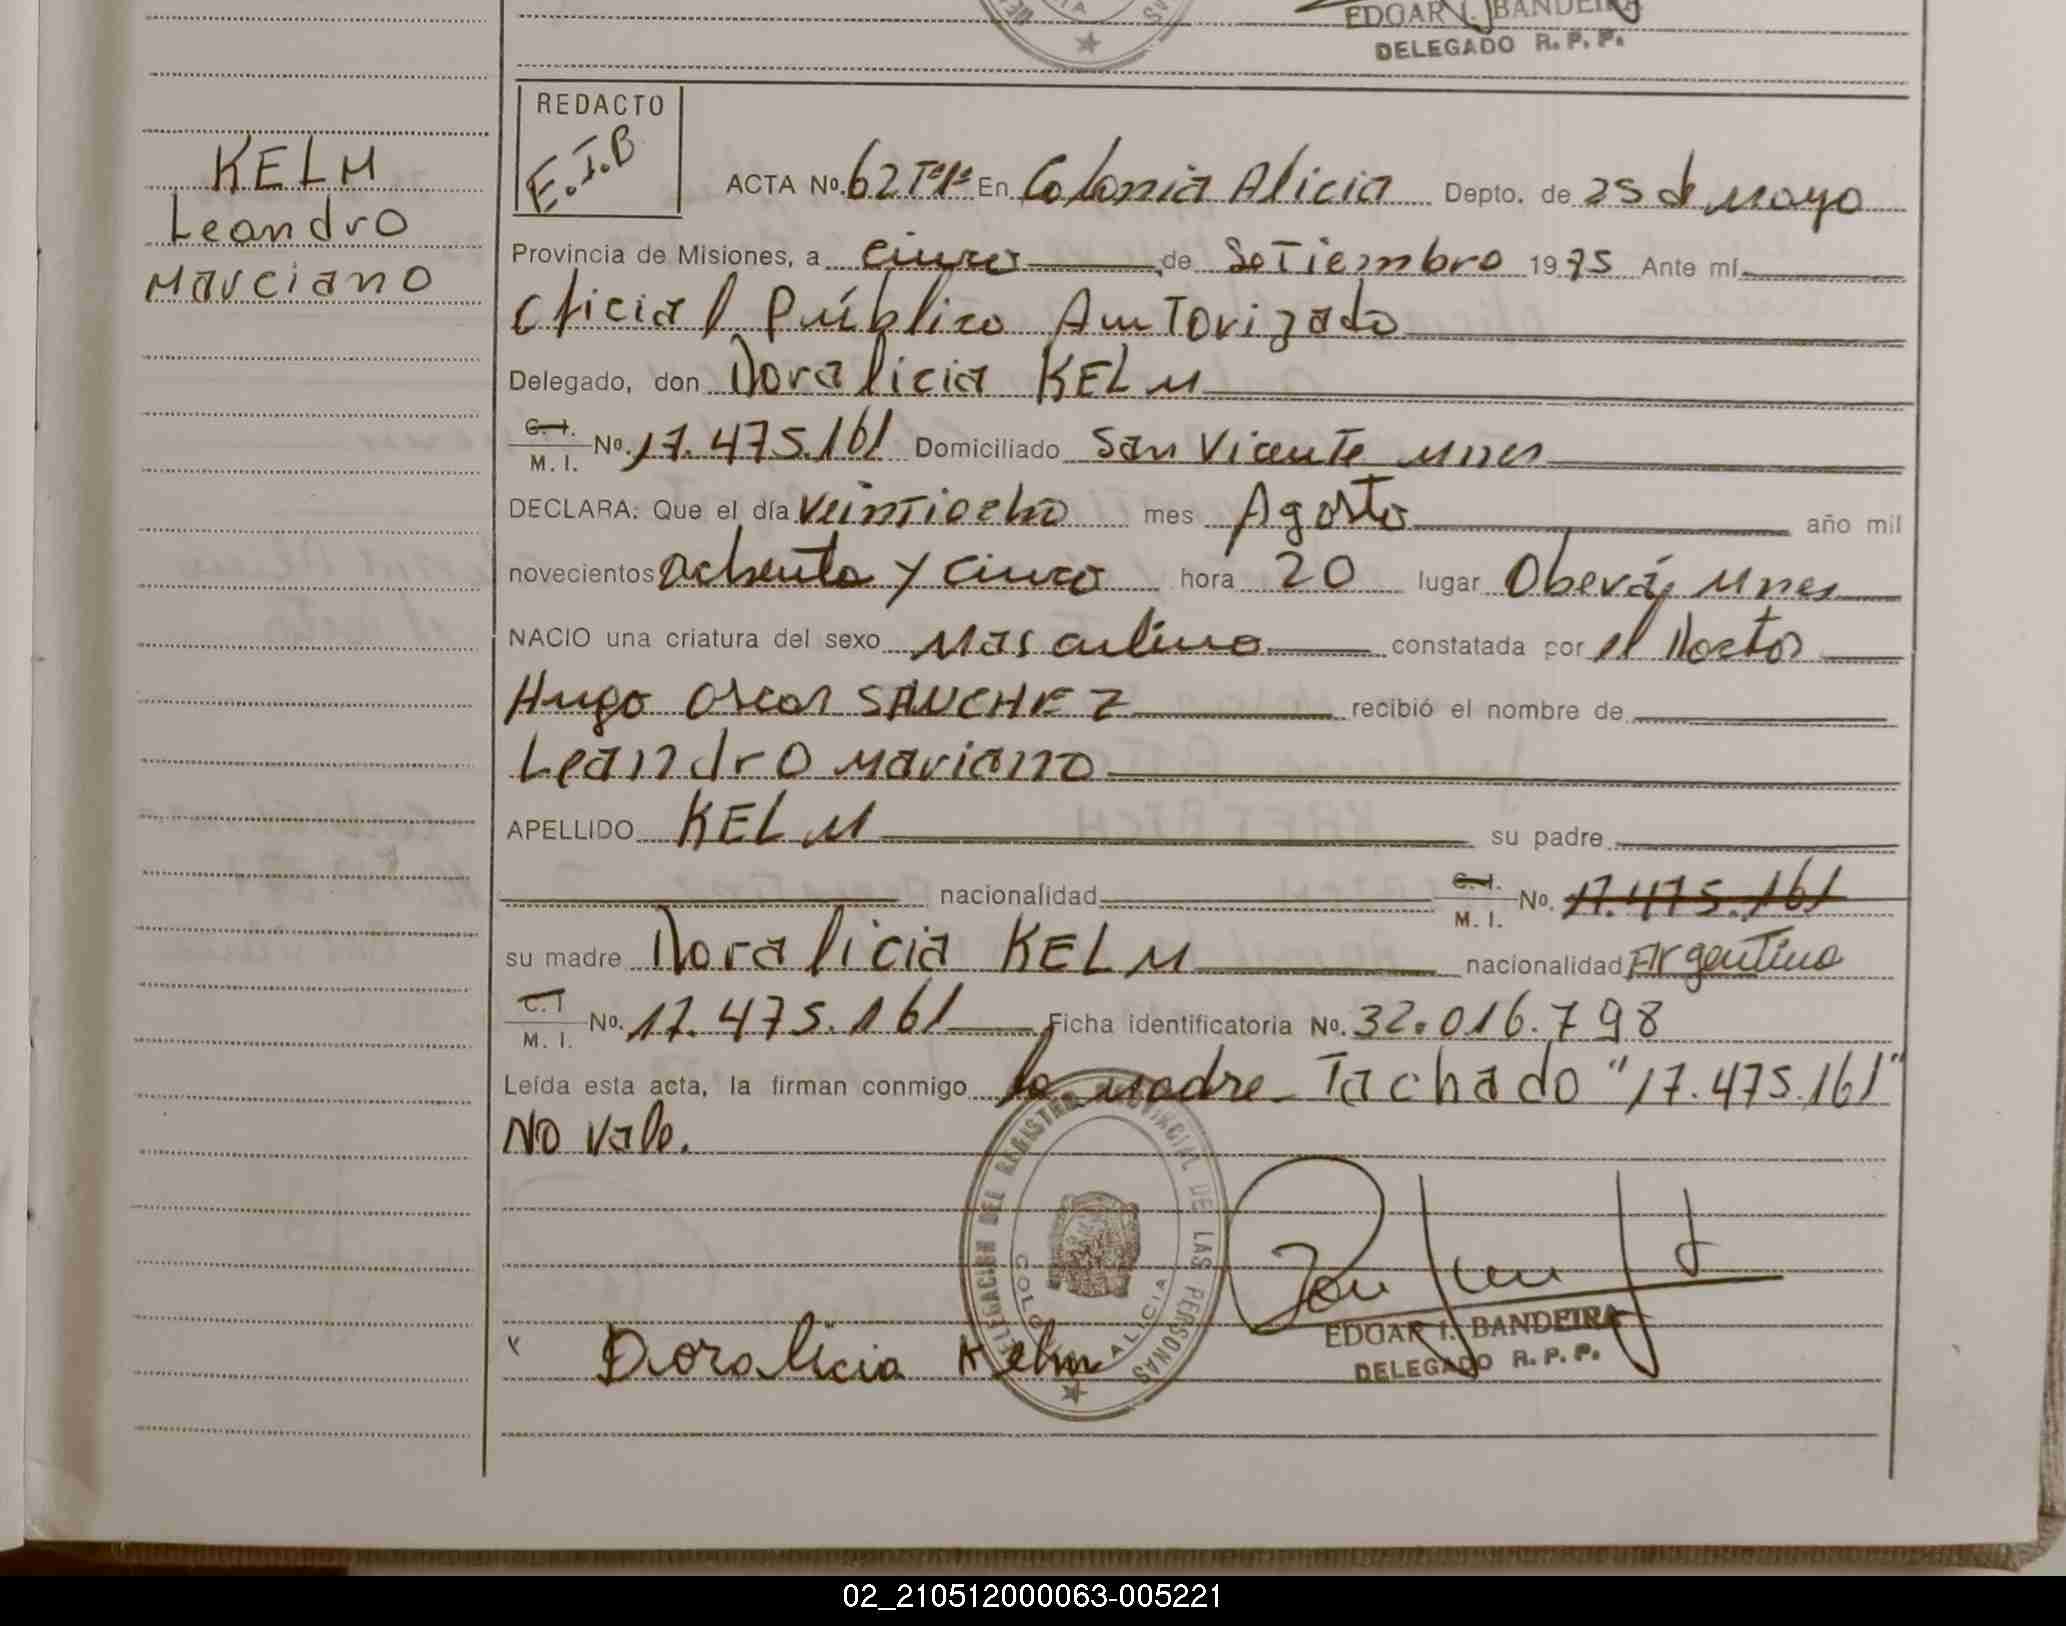 EDGAR I. BANDEIRA
DELEGADO R. P. P.
REDACTO
E.I.B
KELM
Leandro
Marciano
ACTA No. 62 Tº1º En Colonia Alicia Depto. de 25 de Mayo
Provincia de Misiones, a cinco de Setiembre 1975 Ante mí
Oficial Público Autorizado
Delegado, don Doralicia KELM
C. I.
M. I. No. 17.475.161 Domiciliado San Vicente Mnes
DECLARA: Que el día veintiocho mes Agosto año mil
novecientos ochenta y cinco hora 20 lugar Oberá, Mnes
NACIO una criatura del sexo Masculino constatada por el Doctor
Hugo Oscar SANCHEZ recibió el nombre de
Leandro Mariano
APELLIDO KELM su padre
nacionalidad C. I. M. I. No. 17.475.161
su madre Doralicia KELM nacionalidad Argentina
C. I
M. I. No. 17.475.161 Ficha identificatoria No. 32.016.798
Leída esta acta, la firman conmigo la madre Tachado "17.475.161"
No vale.
DELEGACION DEL REGISTRO PROVINCIAL DE LAS PERSONAS
COLONIA ALICIA
EDGAR I. BANDEIRA
DELEGADO R. P. P.
Doralicia Kelm
02_210512000063-005221